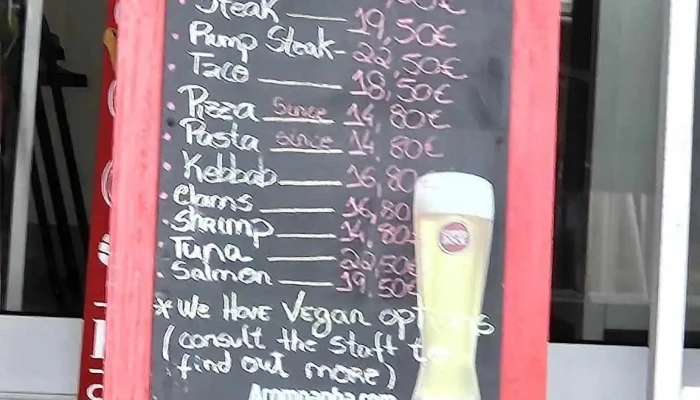 Steak 19,50€
Pump Steak- 22,50€
Taco 18,50€
Pizza Since 14,80€
Pasta since 14,80€
Kebbab 16,80€
Clams 16,80
Shrimp 14,80
Tuna 22,50€
Salmon 19,50€
* We Have Vegan options
(consult the staff to
find out more)